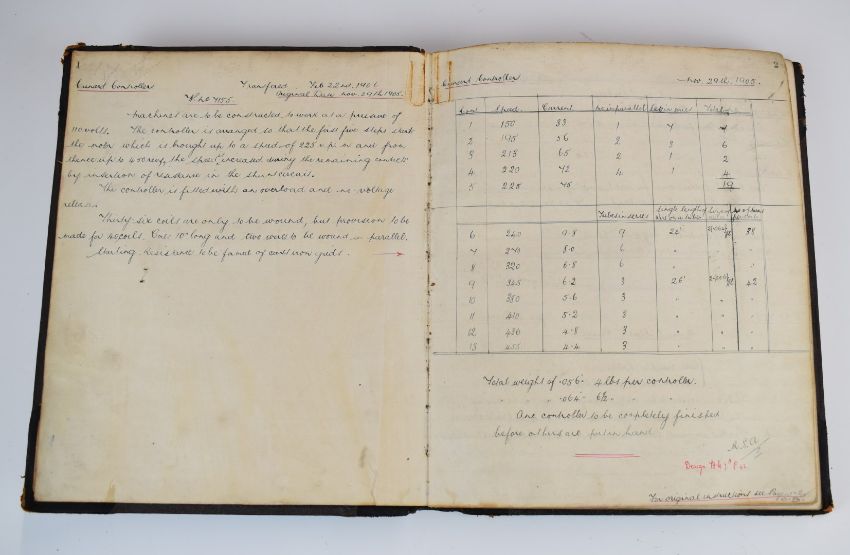 1
Current Controller Transferred Feb 22nd. 1906
Original Date Nov. 29th 1905.
No 4155
Machines are to be constructed to work at a pressure of
110 volts. The controller is arranged so that the first five steps start
the motor which is brought up to a speed of 225 r.p.m and from
thence up to 450 rev, the speed increased during the remaining contacts
by insertion of resistance in the shunt circuit.
The controller is fitted with an overload and no-voltage
release.
Thirty-six coils are only to be wound, but provision to be
made for 40 coils. Cores 10" long and two wires to be wound in parallel.
Starting resistance to be formed of cast iron grids.
2
Current Controller Nov. 29th. 1905.
Cont Speed. Current No in parallel Total
1 150 33 1 4 4
2 195 56 2 3 6
3 215 65 2 1 2
4 220 72 4 1 4
5 225 75 19
Tubes in series Single length of
6 240 9.8 9 26' 38
7 270 8.0 6 " " "
8 320 6.8 6 " " "
9 345 6.2 3 26' 42
10 380 5.6 3 " " "
11 410 5.2 3 " " "
12 430 4.8 3 " " "
13 455 4.4 3 " " "
Total weight of .056" 4 lbs per controller.
" " " .064" 6½ "
One controller to be completely finished
before others are put in hand.
R.S.A.
Design
For original instructions see Page